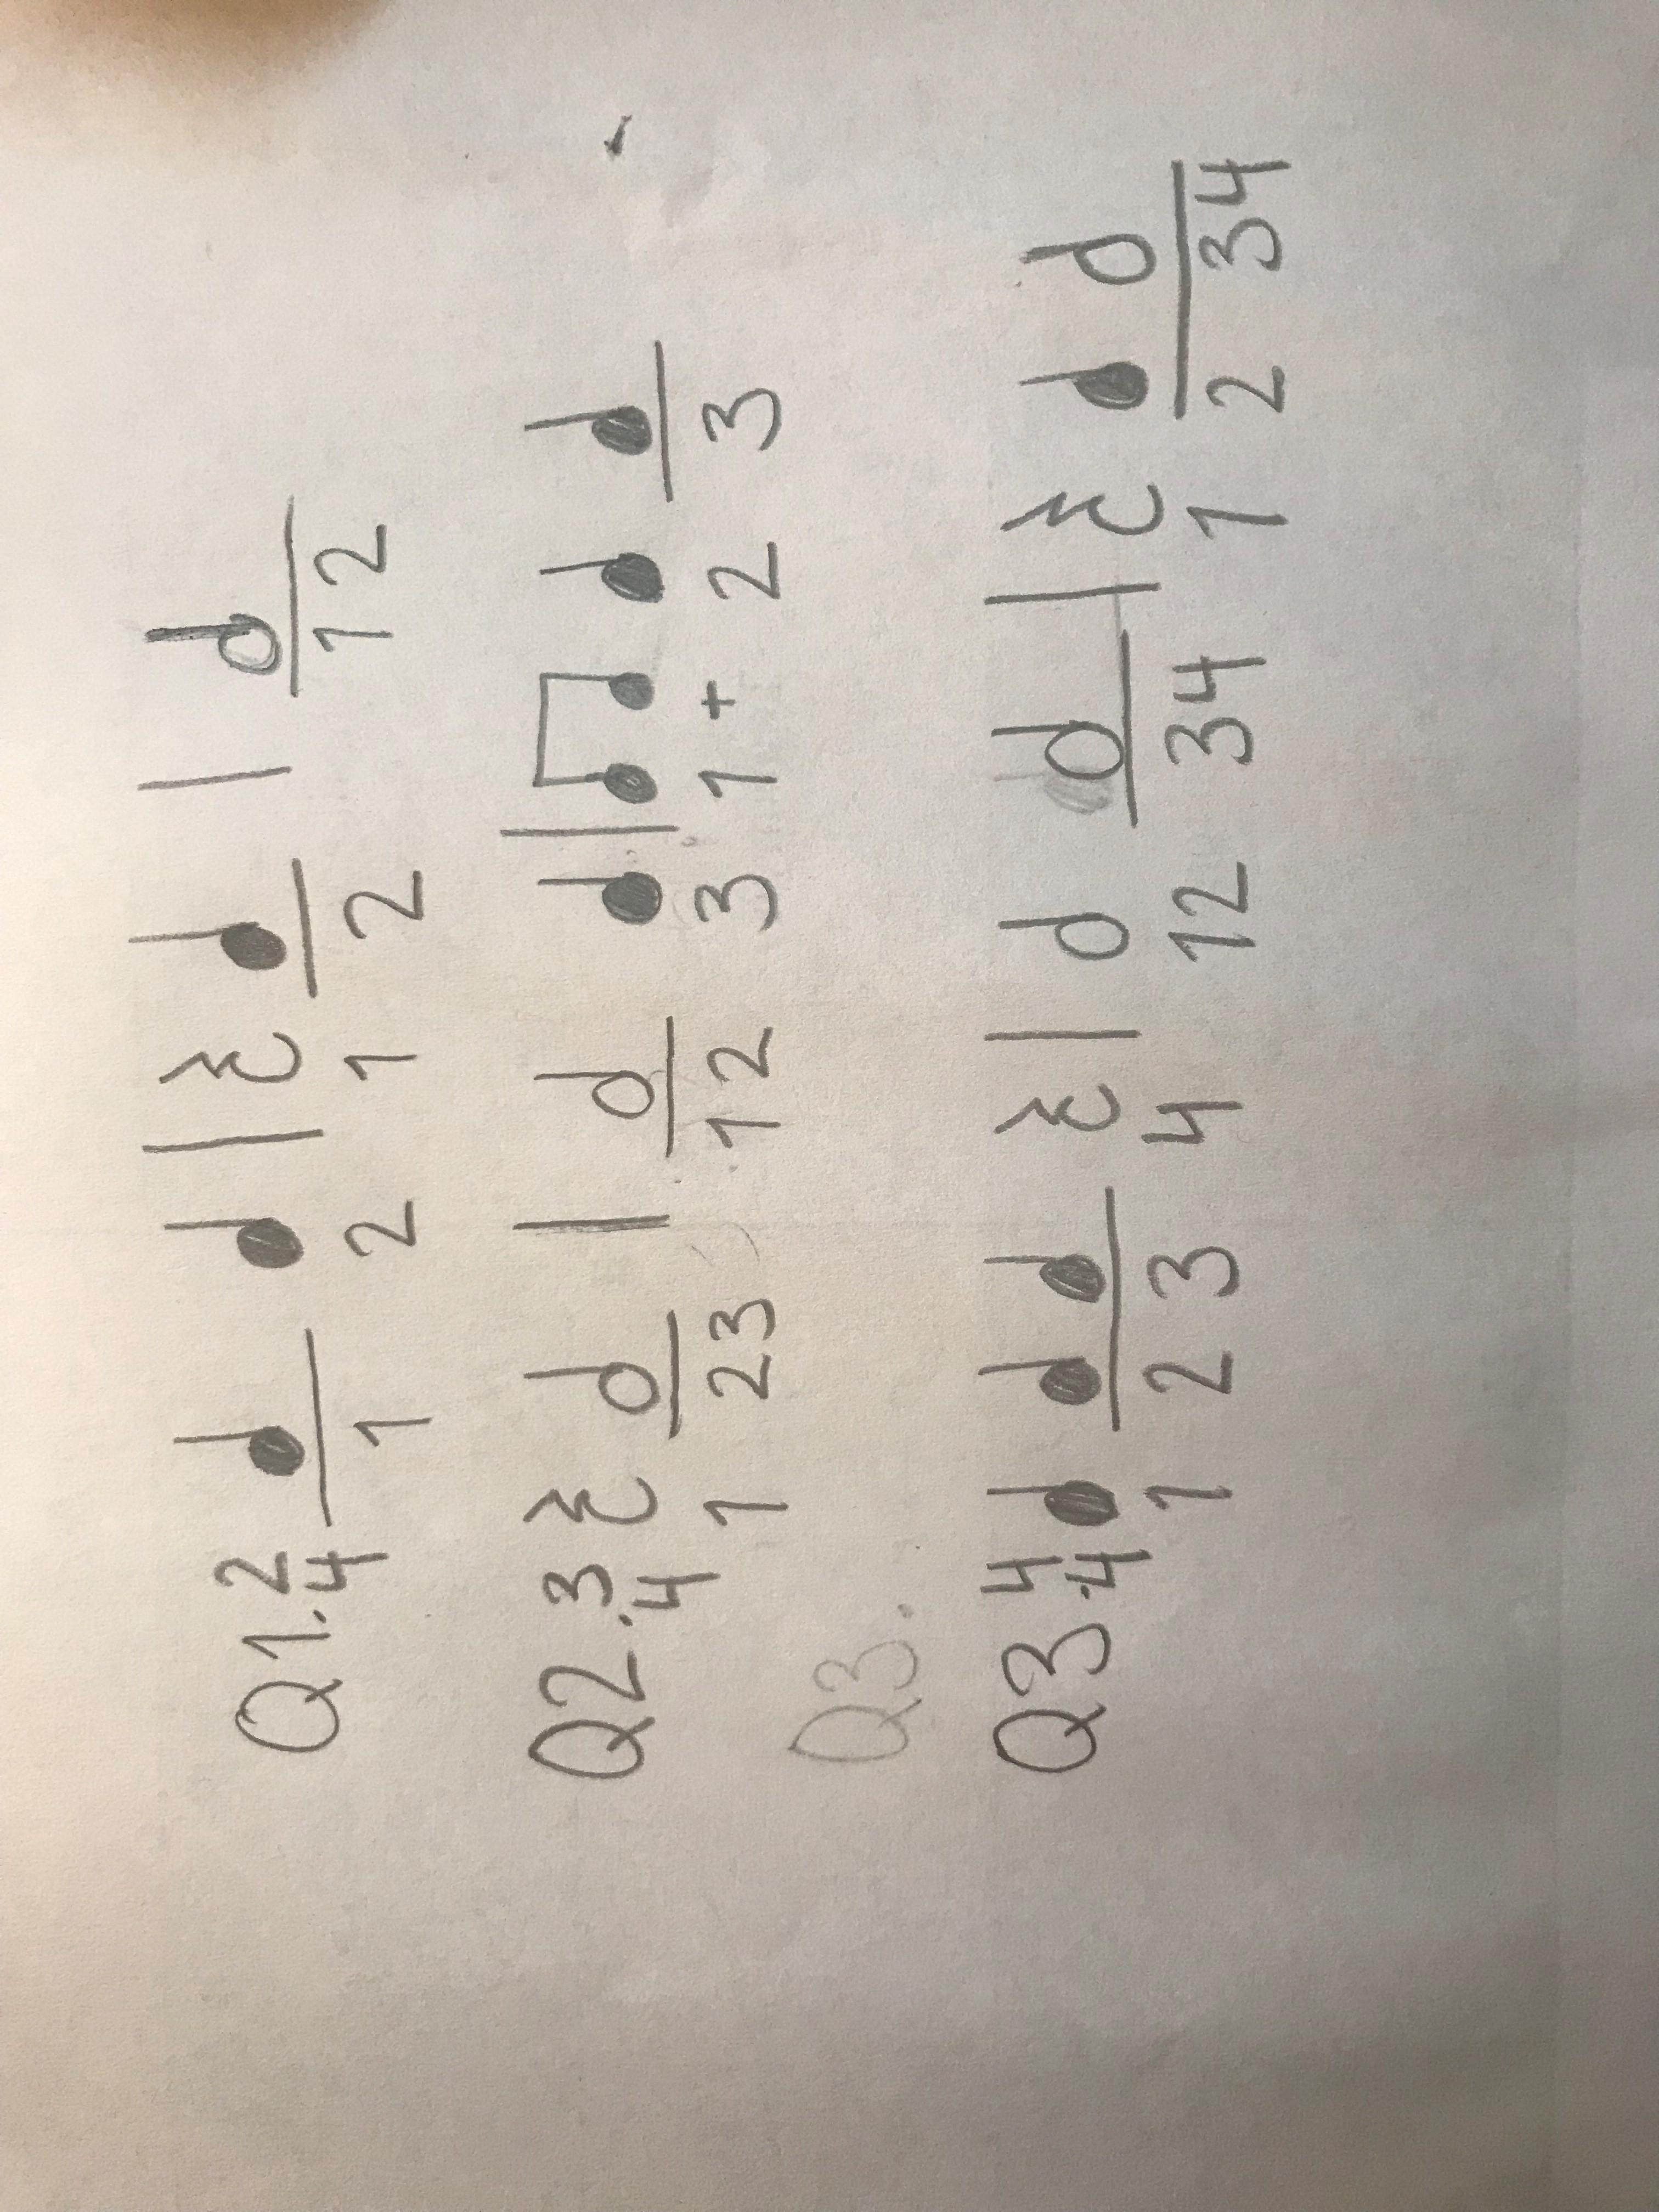 Q1. 2/4 1 2 | 1 2 | 12
Q2. 3/4 1 23 | 12 3 | 1 + 2 3
Q3.
Q3. 4/4 1 2 3 4 | 12 34 | 1 2 34